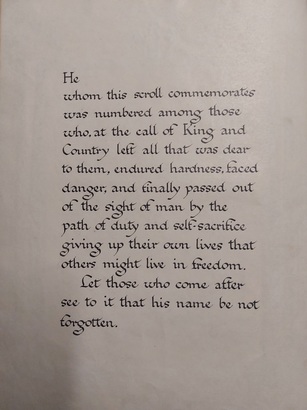 He
whom this scroll commemorates
was numbered among those
who, at the call of King and
Country left all that was dear
to them, endured hardness, faced
danger, and finally passed out
of the sight of man by the
path of duty and self-sacrifice
giving up their own lives that
others might live in freedom.
Let those who come after
see to it that his name be not
forgotten.